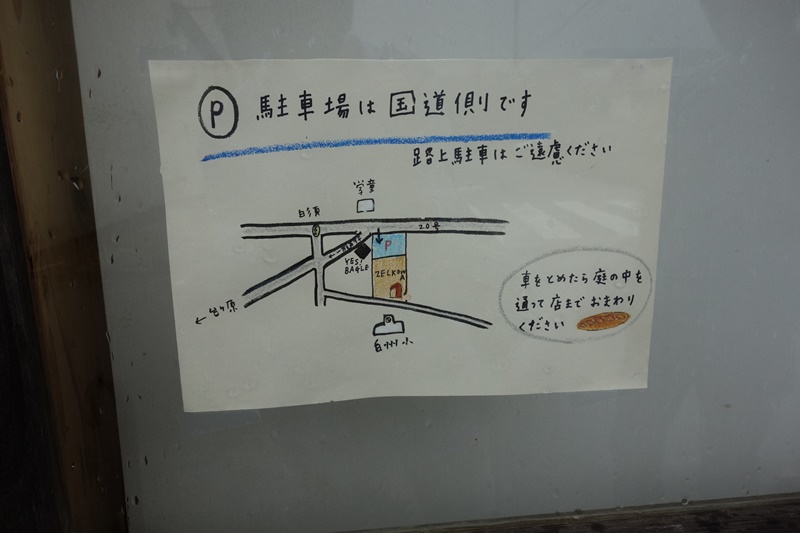 P 駐車場は国道側です
路上駐車はご遠慮ください
学童
白須
20号
P
YES!
BAGLE
ZELKOW
A
車をとめたら庭の中を
通って店までおまわり
ください
←
白州小